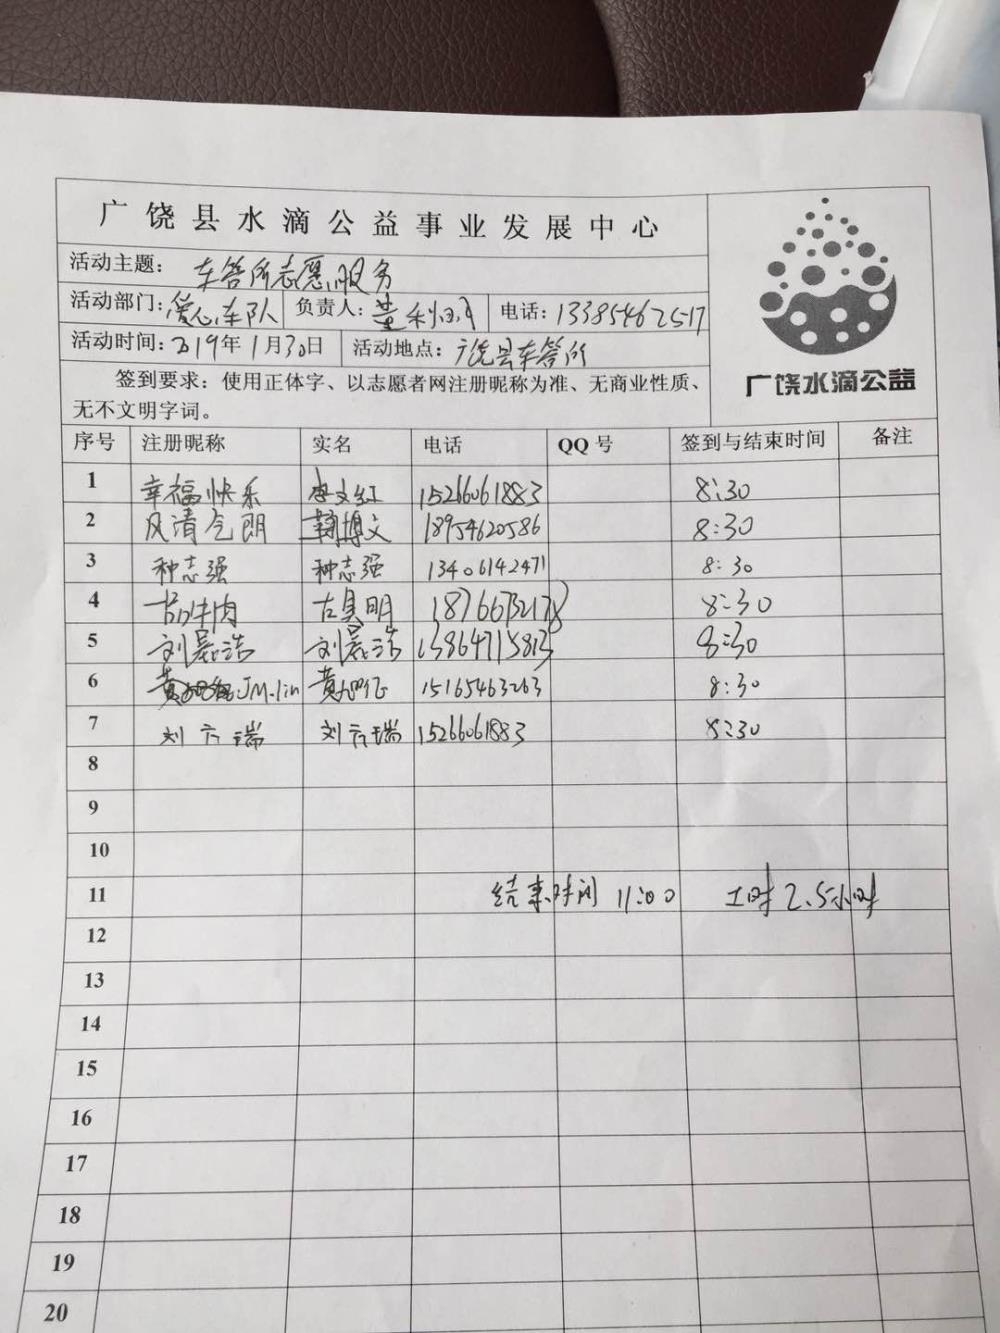 广饶县水滴公益事业发展中心
活动主题： 车管所志愿服务
活动部门：爱心车队 负责人： 电话：13385462517
活动时间：2019年1月30日 活动地点：广饶县车管所
签到要求：使用正体字、以志愿者网注册昵称为准、无商业性质、
无不文明字词。
广饶水滴公益
序号 注册昵称 实名 电话 QQ号 签到与结束时间 备注
1 幸福快乐 15266061883 8:30
2 风清气朗 韩博文 18954620586 8:30
3 种志强 种志强 13406142471 8:30
4 8:30
5 8:30
6 15165463263 8:30
7 15266061883 8:30
8
9
10
11 结束时间 11:00 工时2.5小时
12
13
14
15
16
17
18
19
20